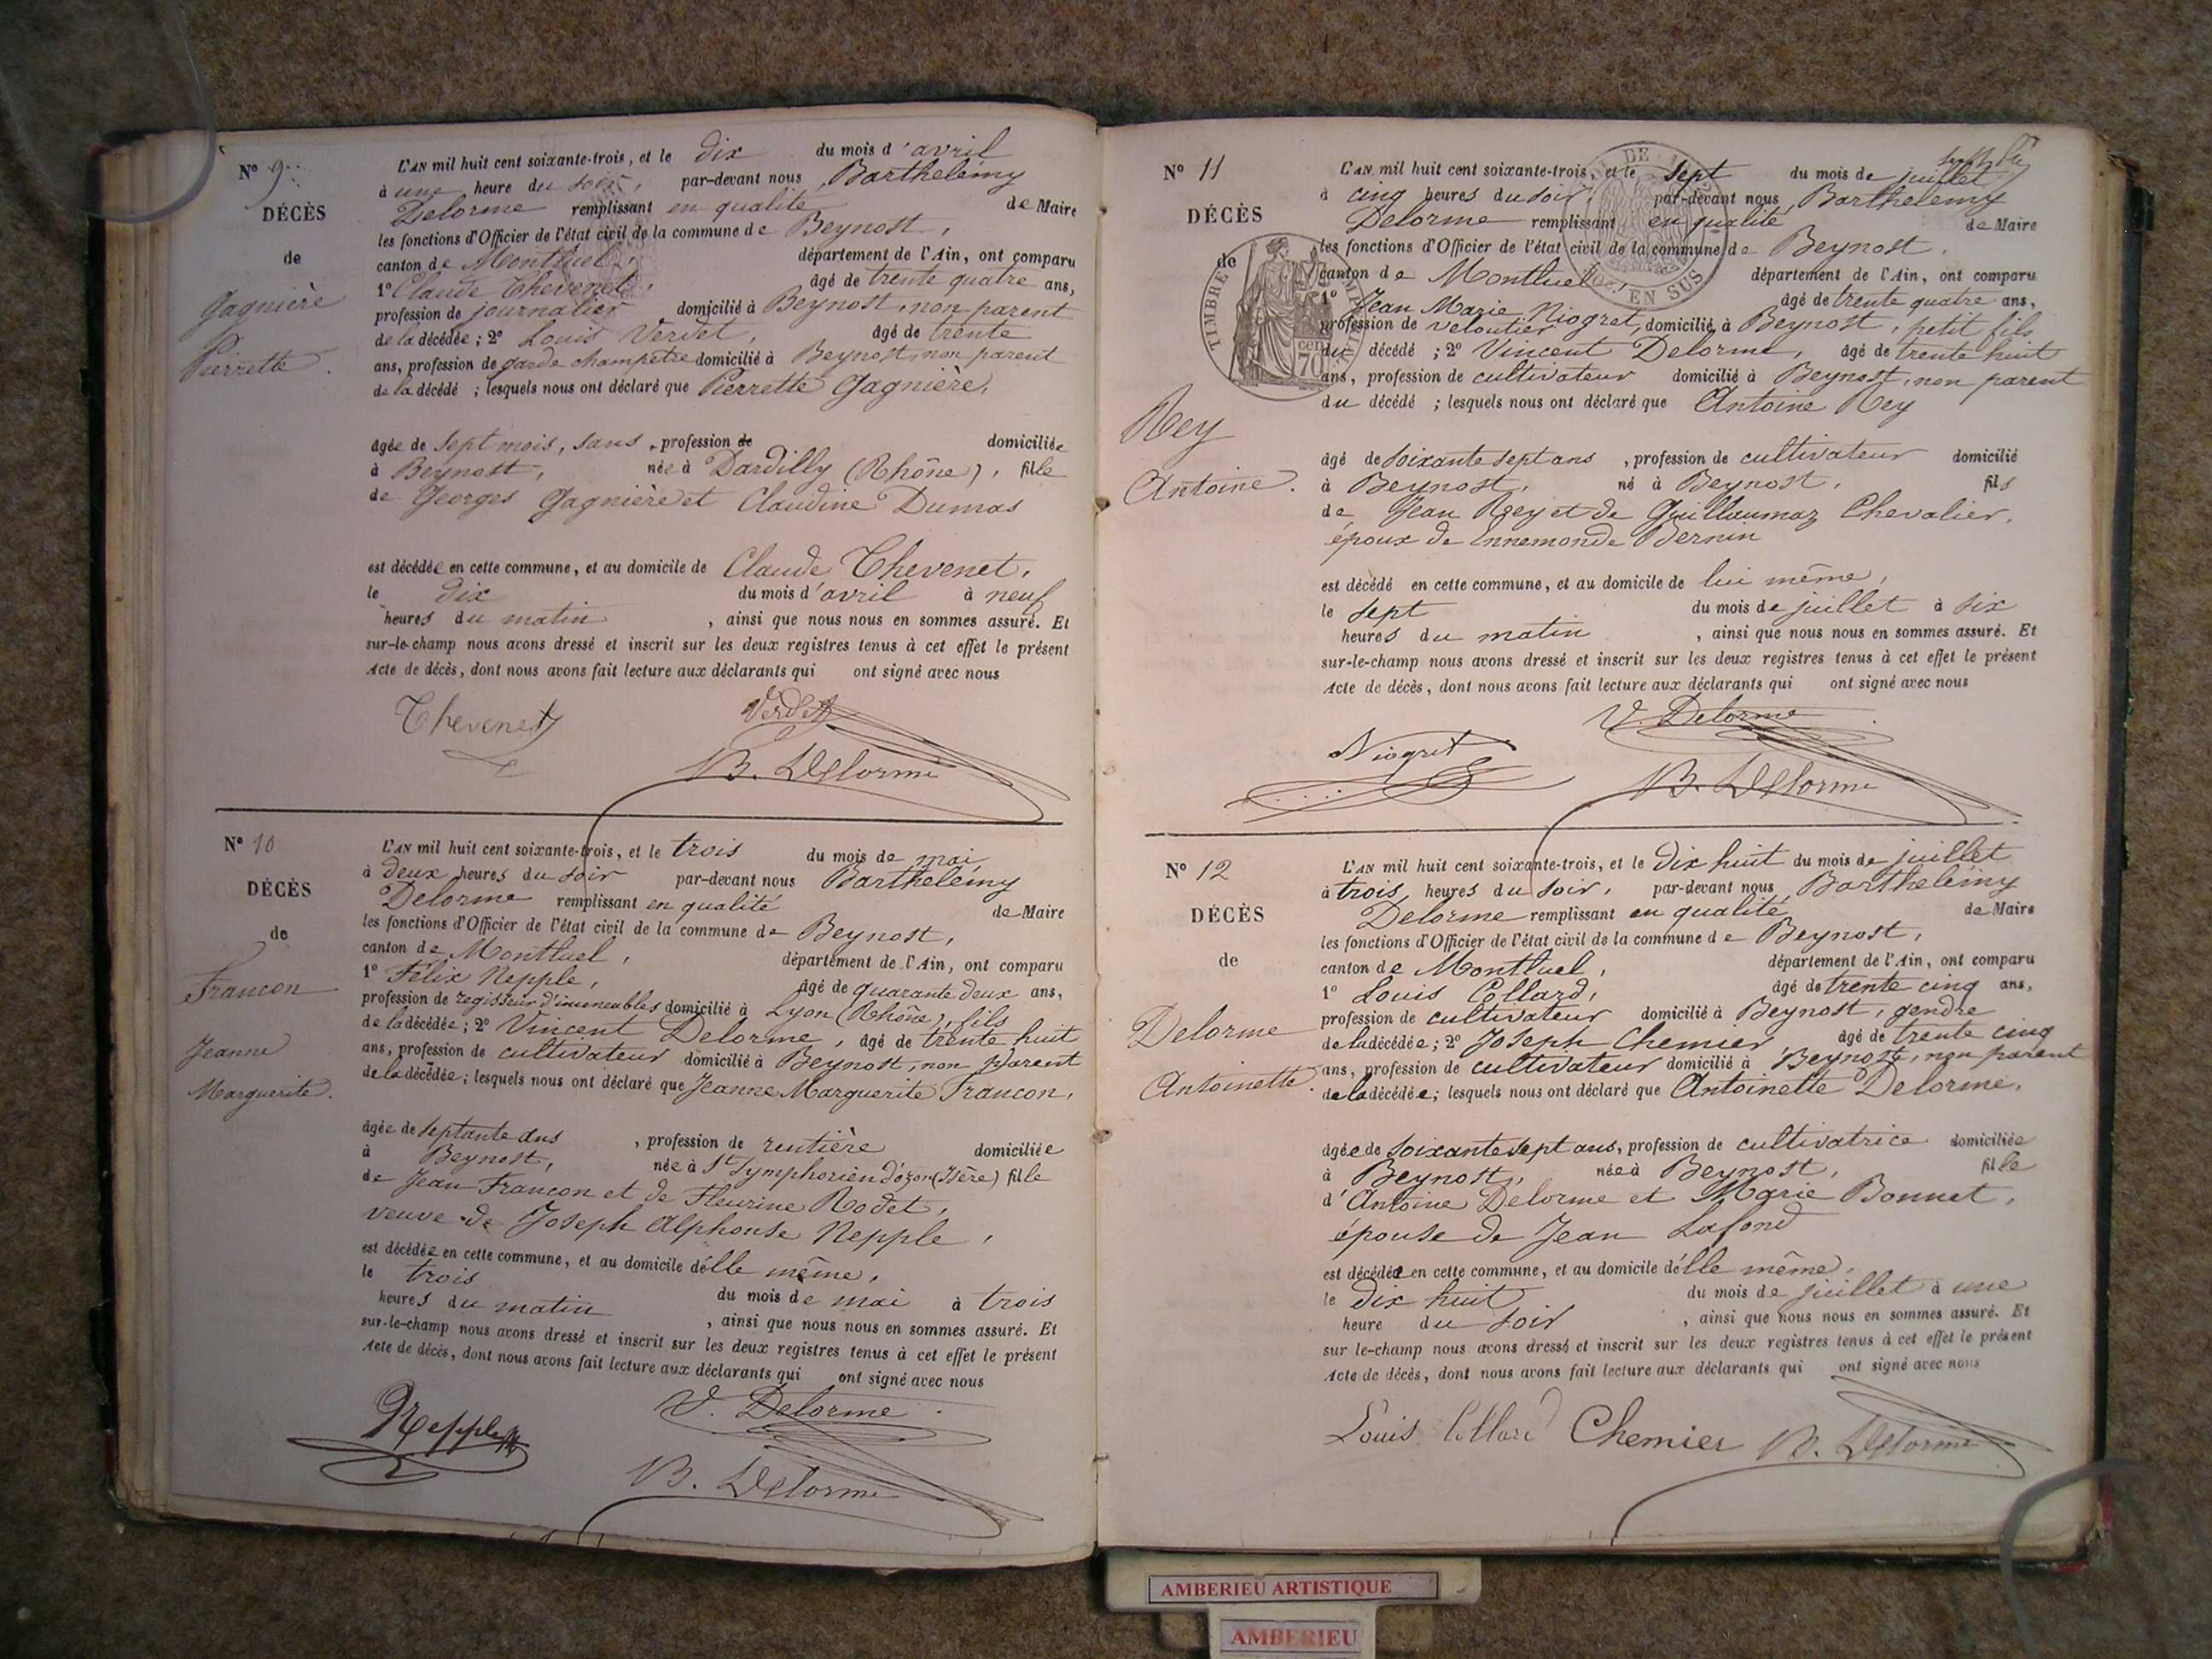 N° 9
DÉCÈS
de
Gagnière
Pierrette.
L'AN mil huit cent soixante-trois, et le dix du mois d'avril
à une heure du soir, par-devant nous Barthelémy
Delorme remplissant en qualité de Maire
les fonctions d'Officier de l'état civil de la commune de Beynost,
canton de Montluel, département de l'Ain, ont comparu
1° Claude Thevenet, âgé de trente quatre ans,
profession de journalier domicilié à Beynost, non parent
de la décédée ; 2° Louis Verdet, âgé de trente
ans, profession de garde champêtre domicilié à Beynost, non parent
de la décédé ; lesquels nous ont déclaré que Pierrette Gagnière,
âgée de sept mois, sans profession de domiciliée
à Beynost, née à Dardilly (Rhône), fille
de Georges Gagnière et Claudine Dumas
est décédée en cette commune, et au domicile de Claude Thevenet,
le dix du mois d'avril à neuf
heures du matin , ainsi que nous nous en sommes assuré. Et
sur-le-champ nous avons dressé et inscrit sur les deux registres tenus à cet effet le présent
Acte de décès, dont nous avons fait lecture aux déclarants qui ont signé avec nous
Thevenet Verdet
B. Delorme
N° 10
DÉCÈS
de
Francon
Jeanne
Marguerite.
L'AN mil huit cent soixante-trois, et le trois du mois de mai
à deux heures du soir par-devant nous Barthelémy
Delorme remplissant en qualité de Maire
les fonctions d'Officier de l'état civil de la commune de Beynost,
canton de Montluel, département de l'Ain, ont comparu
1° Félix Nepple, âgé de quarante deux ans,
profession de regisseur d'immeubles domicilié à Lyon (Rhône), fils
de la décédée ; 2° Vincent Delorme, âgé de trente huit
ans, profession de cultivateur domicilié à Beynost, non parent
de la décédée ; lesquels nous ont déclaré que Jeanne Marguerite Francon,
âgée de septante ans , profession de rentière domiciliée
à Beynost, née à St Symphorien d'ozon (Isère) fille
de Jean Francon et de Fleurine Rodet,
veuve de Joseph Alphonse Nepple,
est décédée en cette commune, et au domicile d'elle même,
le trois du mois de mai à trois
heures du matin , ainsi que nous nous en sommes assuré. Et
sur-le-champ nous avons dressé et inscrit sur les deux registres tenus à cet effet le présent
Acte de décès, dont nous avons fait lecture aux déclarants qui ont signé avec nous
Nepple V. Delorme
B. Delorme
N° 11
DÉCÈS
de
Rey
Antoine.
TIMBRE IMPÉRIAL
70 cen
EN SUS
L'AN mil huit cent soixante-trois, et le sept du mois de juillet
à cinq heures du soir, par-devant nous Barthelémy
Delorme remplissant en qualité de Maire
les fonctions d'Officier de l'état civil de la commune de Beynost,
canton de Montluel, département de l'Ain, ont comparu
1° Jean Marie Niogret, âgé de trente quatre ans,
profession de veloutier, domicilié à Beynost, petit fils
du décédé ; 2° Vincent Delorme, âgé de trente huit
ans, profession de cultivateur domicilié à Beynost, non parent
du décédé ; lesquels nous ont déclaré que Antoine Rey
âgé de soixante sept ans , profession de cultivateur domicilié
à Beynost, né à Beynost, fils
de Jean Rey et de Guillaumaz Chevalier,
époux de Ennemonde Bernin
est décédé en cette commune, et au domicile de lui même,
le sept du mois de juillet à six
heures du matin , ainsi que nous nous en sommes assuré. Et
sur-le-champ nous avons dressé et inscrit sur les deux registres tenus à cet effet le présent
Acte de décès, dont nous avons fait lecture aux déclarants qui ont signé avec nous
V. Delorme
Niogret
B. Delorme
N° 12
DÉCÈS
de
Delorme
Antoinette.
L'AN mil huit cent soixante-trois, et le dix huit du mois de juillet
à trois heures du soir, par-devant nous Barthelémy
Delorme remplissant en qualité de Maire
les fonctions d'Officier de l'état civil de la commune de Beynost,
canton de Montluel, département de l'Ain, ont comparu
1° Louis Collard, âgé de trente cinq ans,
profession de cultivateur domicilié à Beynost, gendre
de la décédée ; 2° Joseph Chemier âgé de trente cinq
ans, profession de cultivateur domicilié à Beynost, non parent
de la décédée ; lesquels nous ont déclaré que Antoinette Delorme,
âgée de soixante sept ans, profession de cultivatrice domiciliée
à Beynost, née à Beynost, fille
d'Antoine Delorme et Marie Bonnet,
épouse de Jean Lafond
est décédée en cette commune, et au domicile d'elle même,
le dix huit du mois de juillet à une
heure du soir , ainsi que nous nous en sommes assuré. Et
sur le-champ nous avons dressé et inscrit sur les deux registres tenus à cet effet le présent
Acte de décès, dont nous avons fait lecture aux déclarants qui ont signé avec nous
Louis Collard Chemier B. Delorme
AMBERIEU ARTISTIQUE
AMBERIEU